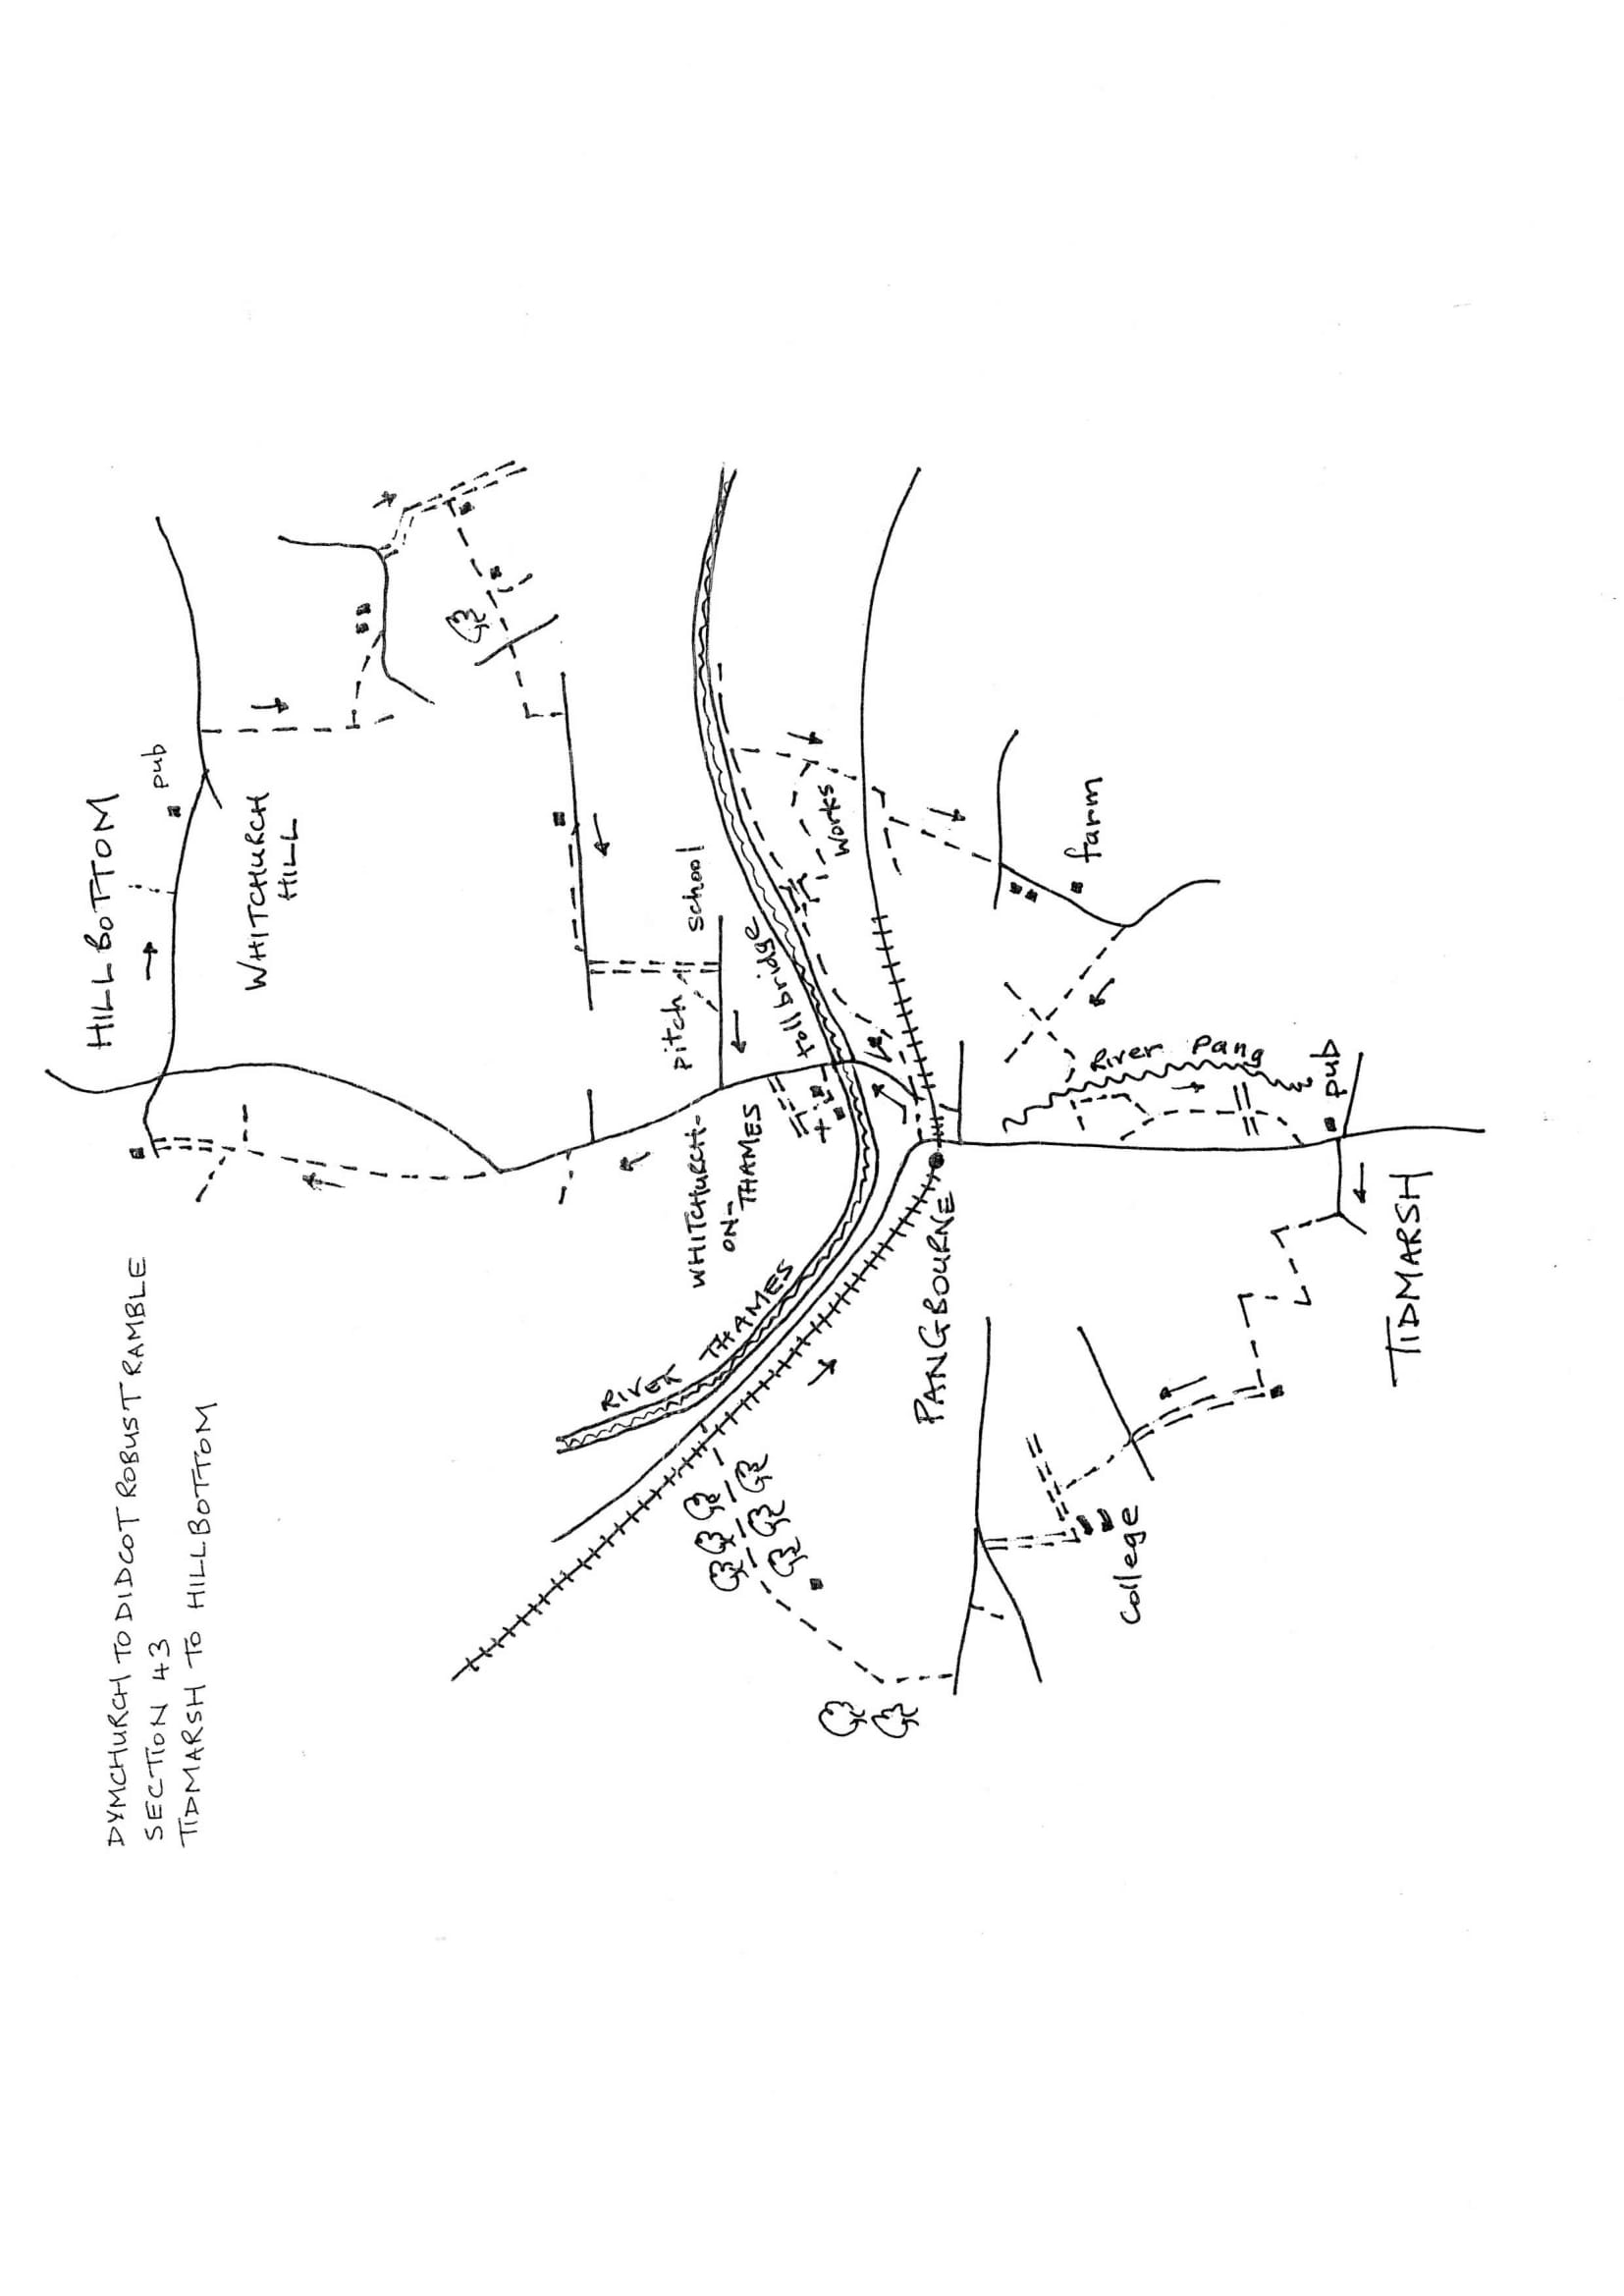 DYMCHURCH TO DIDCOT ROBUST RAMBLE
SECTION 43
TIDMARSH TO HILL BOTTOM
HILL BOTTOM
pub
WHITCHURCH
HILL
RIVER THAMES
WHITCHURCH-
ON-
THAMES
pitch
school
toll bridge
works
PANGBOURNE
college
farm
River Pang
pub
TIDMARSH